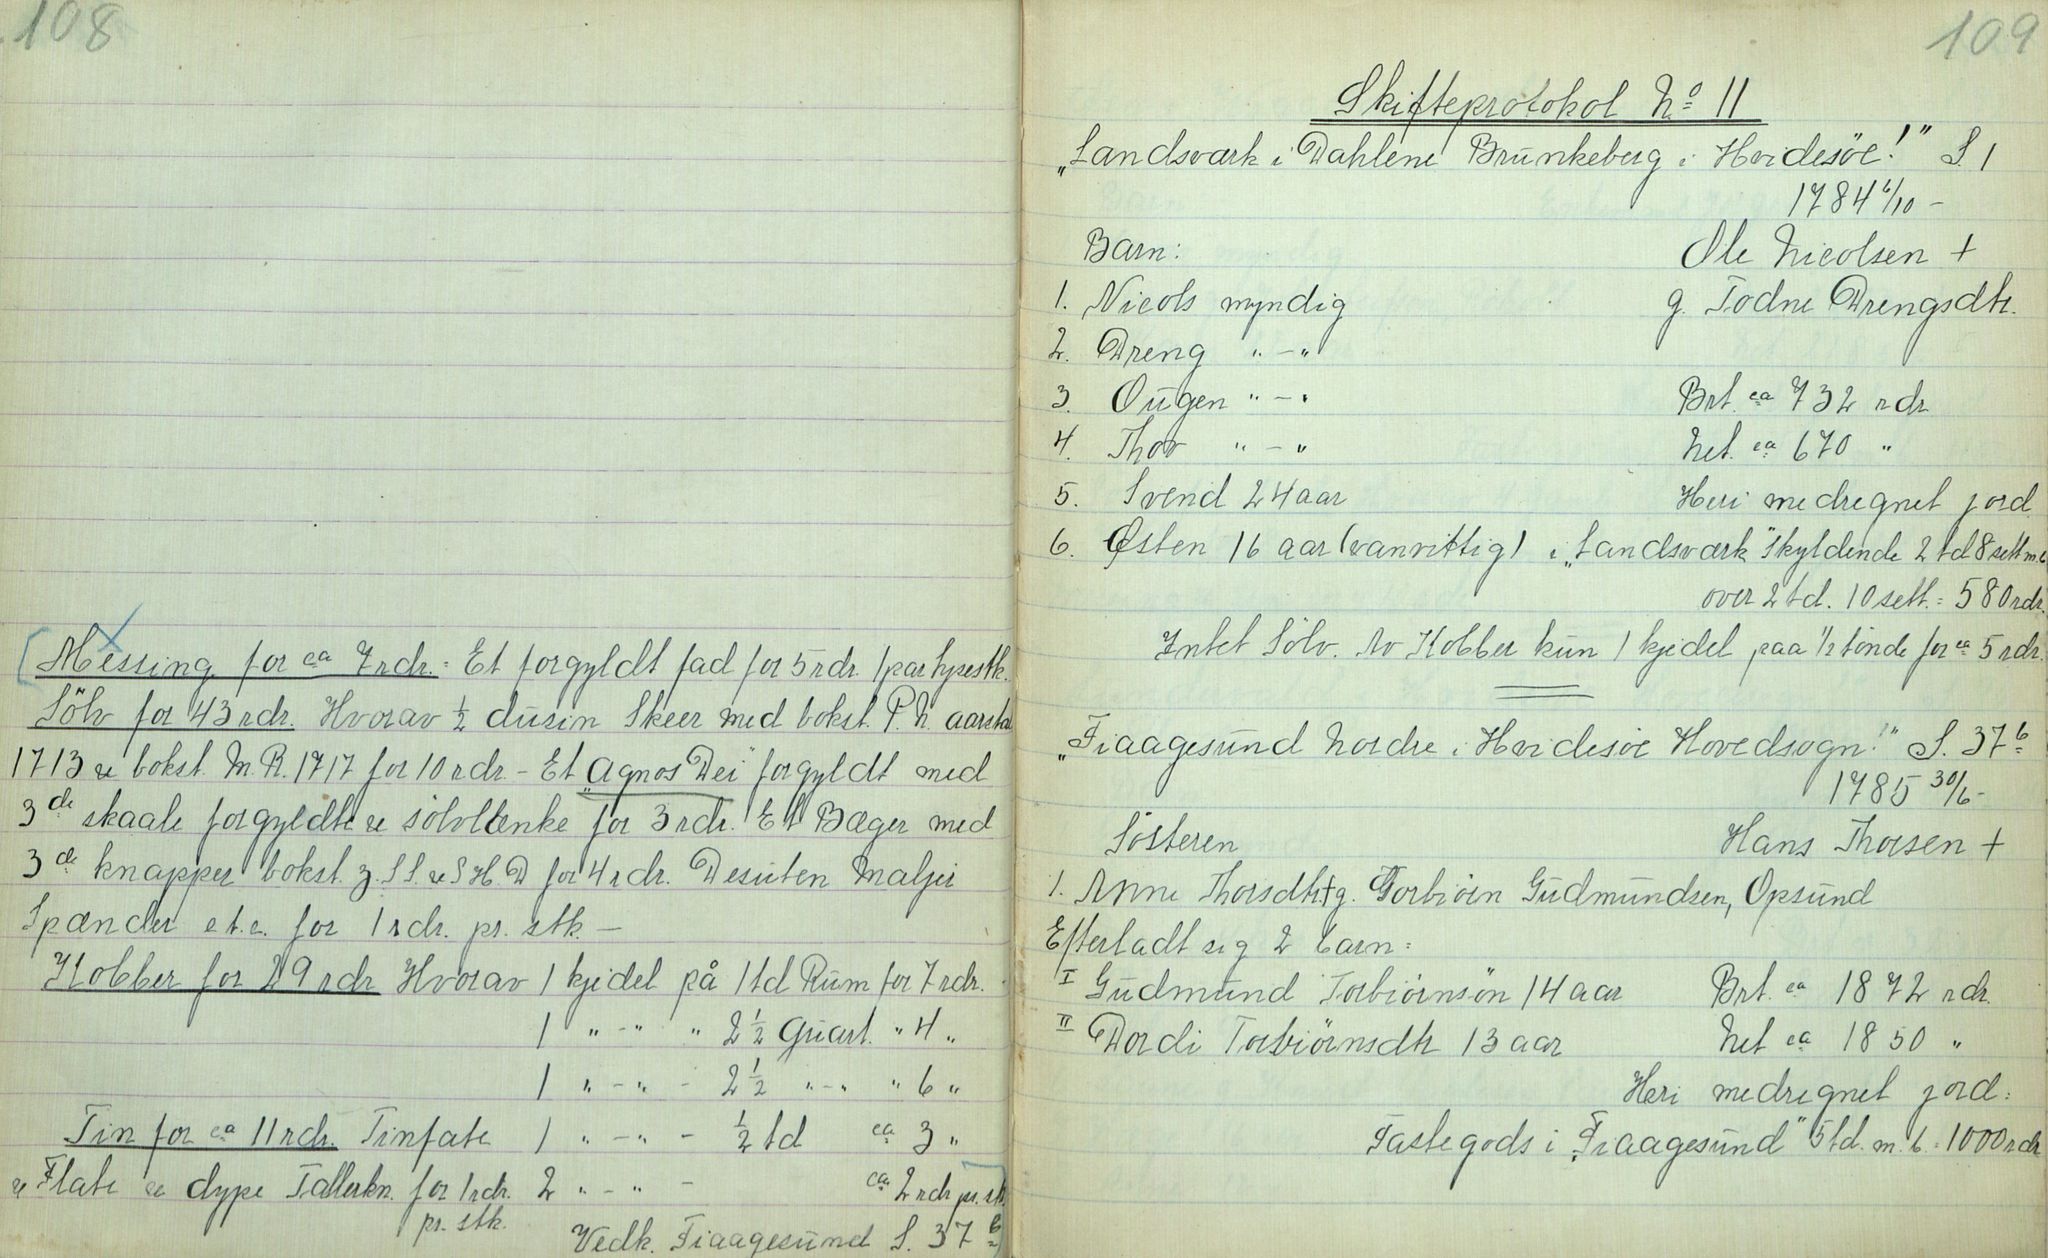 108
Messing for ca 7 rdr. = Et forgyldt fad for 5 rdr. 1 par lysestk.
Sölv for 43 rdr. Hvorav ½ dusin Skeer med bokst. P. N. aarstal
1713 & bokst. M. R. 1717 for 10 rdr. – Et „Agnos Dei" forgyldt med
3de skaale forgyldte & sölvlænke for 3 rdr. Et Bæger med
3de knapper bokst. z. S S. & S H. D for 4 rdr. Desuten Maljer
Spænder e.t.c. for 1 rdr. pr. stk. –
Kobber for 29 rdr Hvorav 1 kjedel på 1 td Rum for 7 rdr.
1 " - " " 2 ½ Quart. " 4 "
1 " - " - 2 ½ " - " " 6 "
Tin for ca 11 rdr. Tinfate 1 " - " - ½ td ca 3 "
& Flate & dype Tallerkn. for 1 rdr. 2 " - " - ca 2 rdr pr. stk.
pr. stk.
Vedk. Fiaagesund S. 37 b
109
Skifteprotokol No 11
„Landsværk i Dahlene Brunkeberg i Hvidesöe!" S. 1
1784 6/10 –
Barn: Ole Nicolsen +
1. Nicols myndig g. Todne Drengsdtr.
2. Dreng " - "
3. Ougen " - " Brt. ca 732 rdr
4. Thor " - " Net. ca 670 "
5. Svend 24 aar Heri medregnet jord
6. Østen 16 aar (vanvittig) i „Landsværk" skyldende 2 td 8 sett m.b
over 2 td. 10 sett. = 580 rdr.
Intet Sölv. Av Kobber kun 1 kjedel paa ½ tönde for ca 5 rdr.
„Fiaagesund Nordre i Hvidesöe Hovedsogn!" S. 37 b
1785 30/6 –
Sösteren Hans Thorsen +
1. Anne Thorsdtr. + g. Torbiörn Gudmundsen, Opsund
Efterladt sig 2 barn:
I Gudmund Torbiörnsön 14 aar Brt. ca 1872 rdr.
II Dordi Torbiörnsdtr 13 aar Net ca 1850 "
Heri medregnet jord:
Fastegods i „Fiaagesund" 5 td. m. b. = 1000 rdr